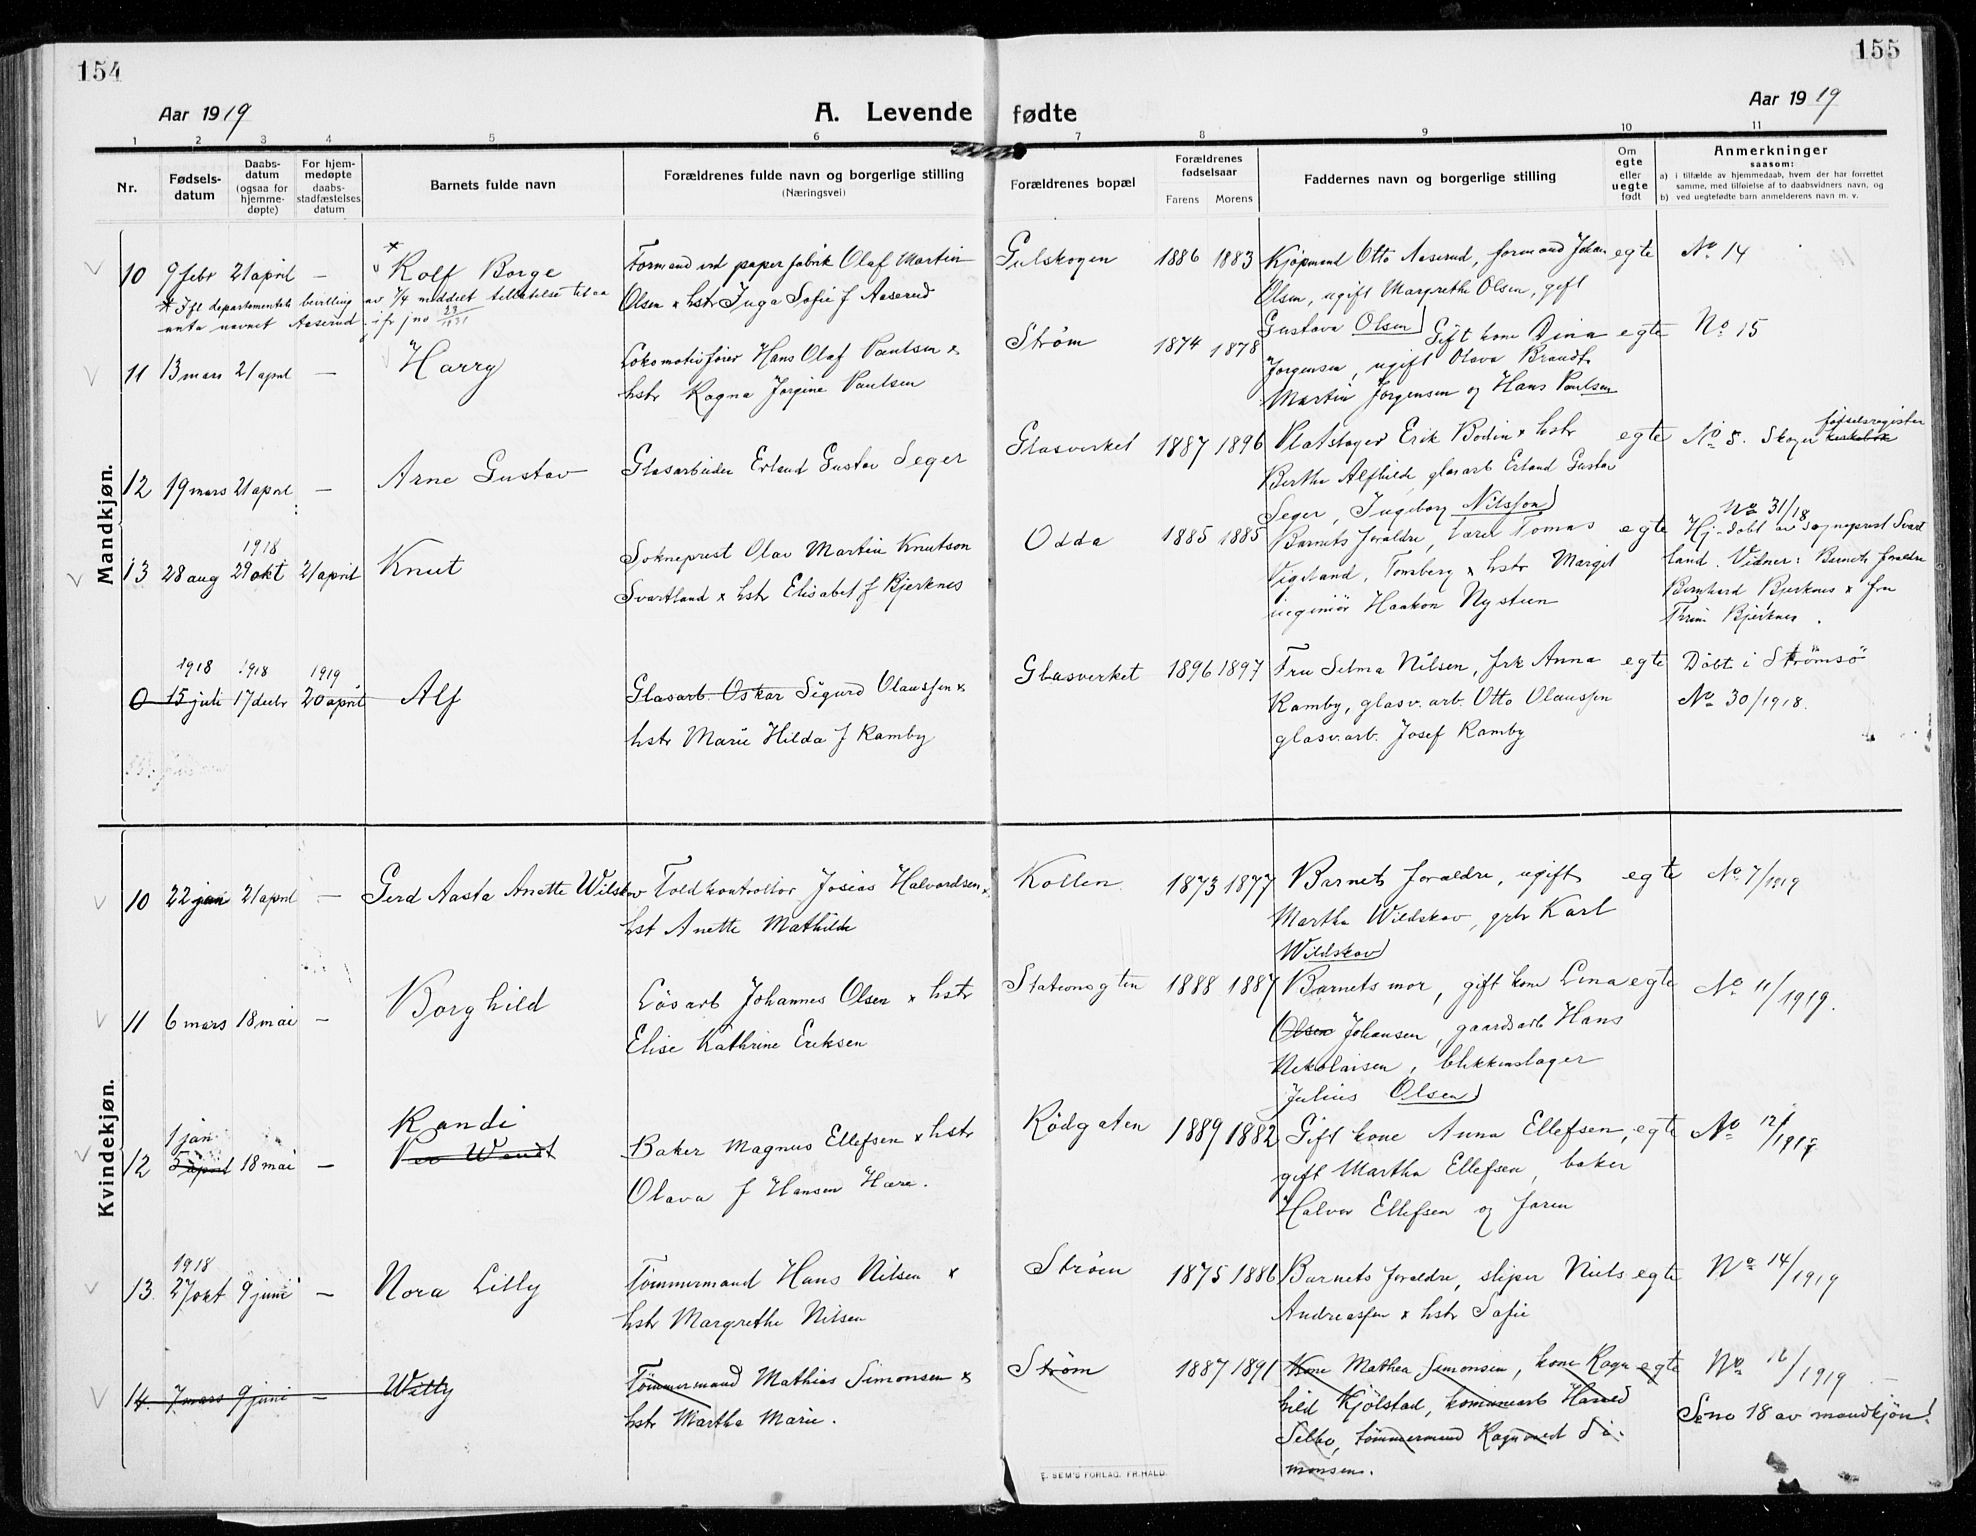 154
155
Aar 1919
A. Levende fødte
Aar 1919
1 2 3 4 5 6 7 8 9 10 11
Nr.
Fødsels-
datum
Daabs-
datum
(ogsaa for
hjemme-
døpte)
For hjem-
medøpte
daabs-
stadfæstelses
datum
Barnets fulde navn
Forældrenes fulde navn og borgerlige stilling
(Næringsvei)
Forældrenes bopæl
Forældrenes
fødselsaar
Farens Morens
Faddernes navn og borgerlige stilling
Om
egte
eller
uegte
født
Anmerkninger
saasom:
a) i tilfælde av hjemmedaab, hvem der har forrettet
samme, med tilføielse af to daabsvidners navn, og
b) ved uegtefødte barn anmelderens navn m. v.
Mandkjøn.
10 9 febr 21 april – * Rolf Borge
* Ifl departementets bevilling av 7/4 meddelt tillatelse til aa
anta navnet Aaserud. jfr jno 23/1931
Formand ved papirfabrik Olaf Martin
Olsen & hstr Inga Sofie f Aaserud
Gulskogen 1886 1883
Kjøpmand Otto Aaserud, formand Johan
Olsen, ugift Margrethe Olsen, gift
Gustava Olsen
egte No 14
11 13 mars 21 april – Harry
Lokomotivfører Hans Olaf Paulsen &
hstr Ragna Jørgine Paulsen
Strøm 1874 1878
Gift kone Dina
Jørgensen, ugift Olava Brandt
Martin Jørgensen og Hans Paulsen
egte No 15
12 19 mars 21 april – Arne Gustav
Glasarbeider Erland Gustav Seger
Glasverket 1887 1896
Platslager Erik Bodin & hstr
Bertha Alfhilde, glasarb Erland Gustav
Seger, Ingeborg Nilsson
egte No 5. Skoger kirkebok fødselsregister
13 28 aug 1918 29 okt 21 april Knut
Sokneprest Olav Martin Knutson
Svartland & hstr Elisabet f Bjerknes
Odda 1885 1885
Barnets forældre, lærer Tomas
Vigeland, Tønsberg & hstr Margit
ingeniør Haakon Nysteen
egte No 31/18
Hj-døbt av sogneprest Svart
land. Vidner: Barnets foraldre
Bernhard Bjerknes & fru
Bjerknes.
1918 1918 1919
0 15 juli 17 decbr 20 april Alf
Glasarb. Oskar Sigurd Olaussen &
hstr Marie Hilda f Ramby
Glasverket 1896 1897
Fru Selma Nilsen, frk Anna
Ramby, glasv. arb. Otto Olaussen
glasv.arb. Josef Ramby
egte Døbt i Strømsø
No 30/1918.
Kvindekjøn.
10 22 jan 21 april – Gerd Aasta Anette Wilskov
Toldkontrollør Josias Halvordsen &
hst Anette Mathilde
Kollen 1873 1877
Barnets foraldre, ugift
Martha Wildskov, Karl
Wildskov
egte No 7/1919
11 6 mars 18 mai – Borghild
Løsarb Johannes Olsen & hstr
Elise Kathrine Eriksen
Stationsgten 1888 1887
Barnets mor, gift kone Lina
Olsen Johansen, gaardsarb Hans
Nikolaisen, blikkenslager
Julius Olsen
egte No 11/1919.
12 1 jan 5 april 18 mai – Randi
Per Wendt
Baker Magnus Ellefsen & hstr
Olava f Hansen Hære.
Rødgaten 1889 1882
Gift kone Anna Ellefsen,
gift Martha Ellefsen, baker
Halvor Ellefsen og faren
egte No 12/1919
1918
13. 27 okt 9 juni – Nora Lilly
Tømmermand Hans Nilsen &
hstr Margrethe Nilsen
Strøm 1875 1886
Barnets foraldre, sliper Niels
Andreassen & hstr Sofie
egte No 14/1919
14. 7 mars 9 juni – Willy
Tømmermand Mathias Simonsen &
hstr Martha Marie.
Strøm 1887 1891
Kone Mathea Simonsen, kone Ragn
hild Kjølstad, komunearb
Selbo, tømmermand Ragnvald Si-
monsen.
egte No 16/1919
Se no 18 av mandkjøn!
E. SEM'S FORLAG. FR.HALD.